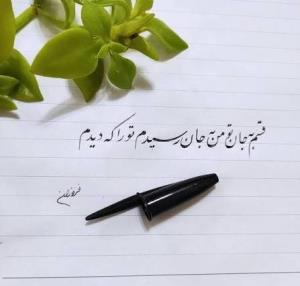 قسم به جان تو من به جان رسیدم تو را که دیدم